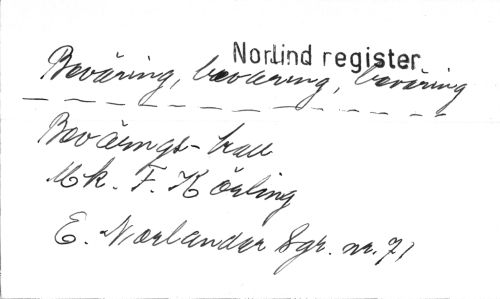 Norlind register
Beväring, bevärning, beväring
Bevärings-
Mk. F. Körling
E. Norlander Sgr. nr. 71